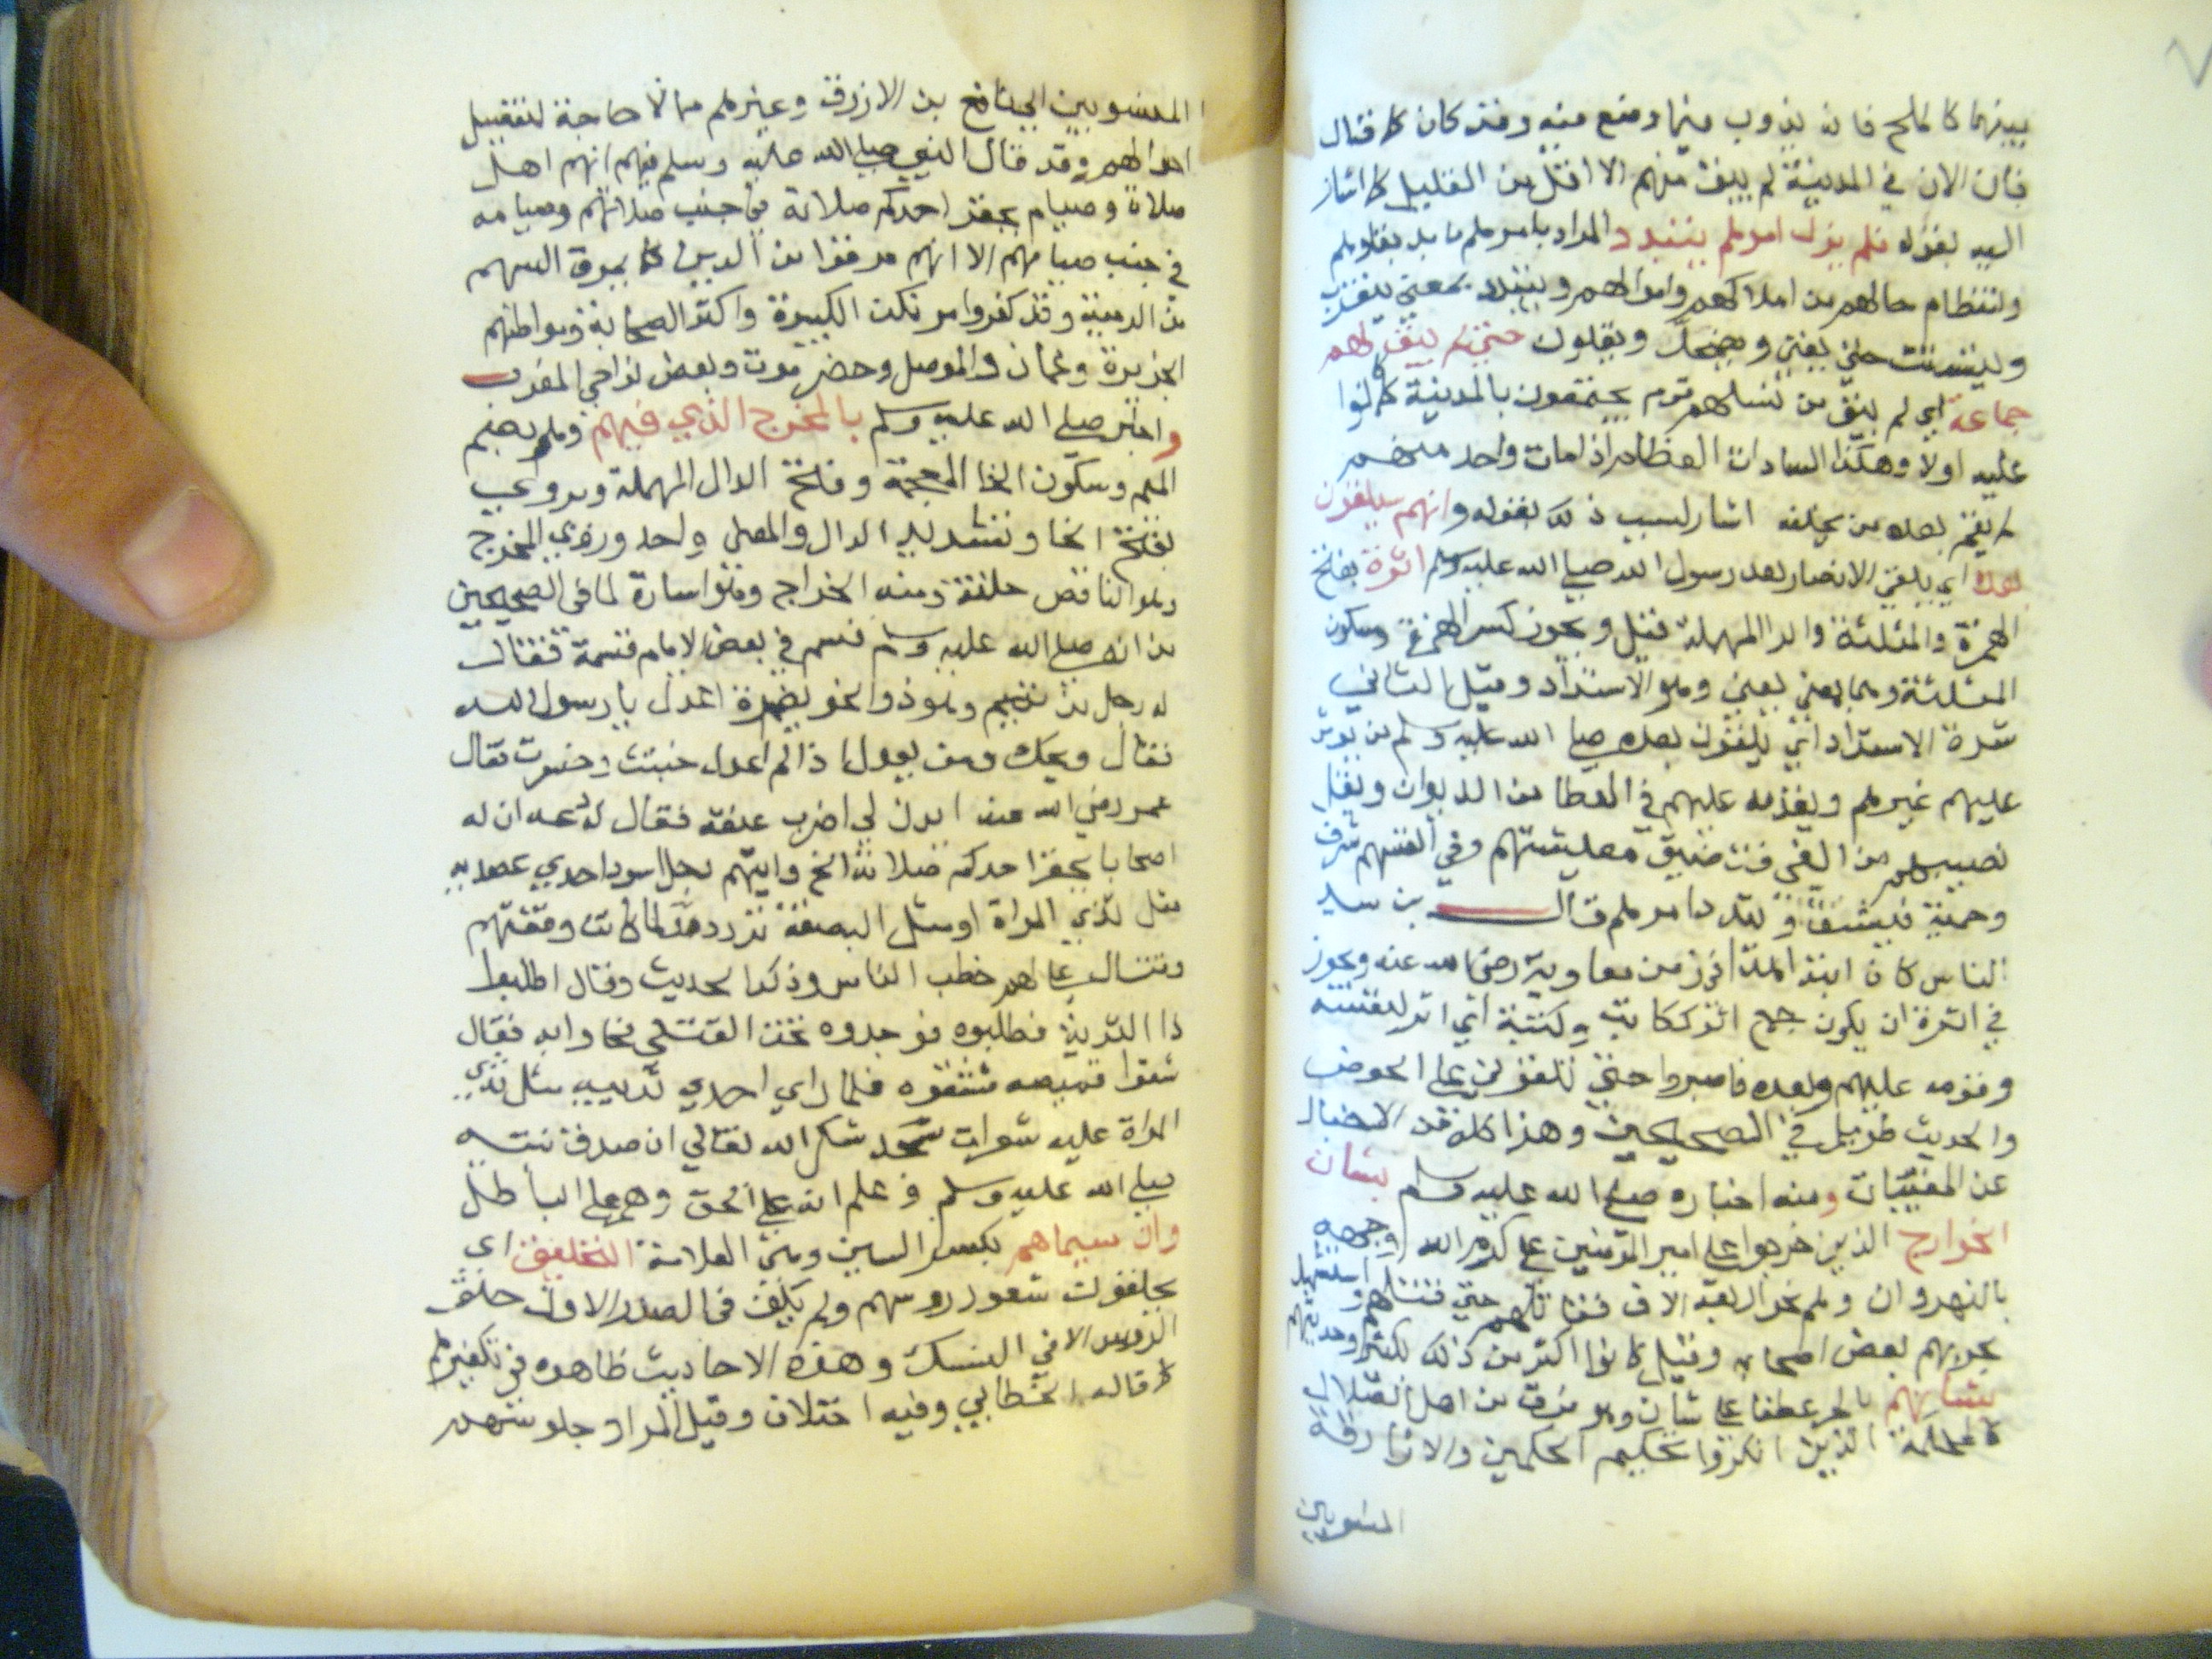 بينهما كالملح فانه يذوب فيها ومنع منه وقد كان كما قال
فان الان في المدينة لم يبق منهم الا اقل من القليل كما اشار
اليه بقوله فلم يزل امرهم يتبدد والمراد بامرهم ما به بقاوهم
وانتظام حالهم من املاكهم واموالهم ويتبدد بمعني يتفرق
ويتشتت حتي يفني ويضمحل ويقلون حتي لم يبق لهم
جماعة اي لم يبق من نسلهم قوم يجتمعون بالمدينة كما كانوا
عليه اولا وهكذا السادات العظام اذا مات واحد منهم
لم يقم بعده من يخلفه اشار لسبب ذلك بقوله وانهم سيلقون
بعده اي يلقي الانصار بعد رسول الله صلي الله عليه وسلم اثرة بفتح
الهمزة والمثلثة والرا المهملة قيل ويجوز كسر الهمزة وسكون
المثلثة وهما بمعني يعني وهو الاستبداد وقيل الثاني
شدة الاستبداد اي يلقون بعده صلي الله عليه وسلم من يوثر
عليهم غيرهم ويقدمه عليهم في العطا من الديوان ويقل
نصيبهم من الفي فتضيق معيشتهم وفي انفسهم شرف
وحمية فيشق ويتبدد امرهم قال بن سيد
الناس كان ابتدا هذا في زمن معاوية رضي الله عنه ويجوز
في اثرة ان يكون جمع اثر ككاتب وكتبة اي اثر لنفسه
وقومه عليهم وبعده فاصبروا حتي تلقوني علي الحوض
والحديث طويل في الصحيحين وهذا كله من الاخبار
عن المغيبات ومنه اخباره صلي الله عليه وسلم بشان
الخوارج الذين خرجوا علي امير المومنين علي كرم الله وجهه
بالنهروان وهم نحو اربعة الاف فقاتلهم حتي قتلهم واستشهد
بحربهم بعض اصحابه وقيل كانوا اكثر من ذلك بكثير وحديثهم
بشانهم بالجر عطفا علي شان وهو فرق من اهل الضلال
كالمحكمة الذين انكروا تحكيم الحكمين والازارقة
المنسوبين
المنسوبين الي نافع بن الازرق وغيرهم مما لا حاجة لتفصيل
احوالهم وقد قال النبي صلي الله عليه وسلم فيهم انهم اهل
صلاة وصيام يحقر احدكم صلاته في جنب صلاتهم وصيامه
في جنب صيامهم الا انهم مرقوا من الدين كما يمرق السهم
من الرمية وقد كفروا مرتكب الكبيرة واكثر الصحابة ومواطنهم
الجزيرة وعمان والموصل وحضرموت وبعض نواحي المغرب
واخبر صلي الله عليه وسلم بالمخدج الذي فيهم وهو بضم
الميم وسكون الخا المعجمة وفتح الدال المهملة ويروي
بفتح الخا وتشديد الدال والمعني واحد وروي المخدج
وهو الناقص خلقة ومنه الخداج وهو اشارة لما في الصحيحين
من انه صلي الله عليه وسلم قسم في بعض الايام قسمة فقال
له رجل من تميم وهو ذو الخويصرة اعدل يا رسول الله
فقال ويحك ومن يعدل اذا لم اعدل خبت وخسرت فقال
عمر رضي الله عنه ايذن لي اضرب عنقه فقال له دعه ان له
اصحابا يحقر احدكم صلاته الخ وايتهم رجل اسود احدي عضديه
مثل ثدي المراة او مثل البضعة تدردر فلما كانت وقعتهم
وقتال علي لهم خطب الناس وذكر الحديث وقال اطلبوا
ذا الثدية فطلبوه فوجدوه تحت القتلي فجاوا به فقال
شقوا قميصه فشقوه فلما راي احدي ثدييه مثل ثدي
المراة عليه شعرات سجد شكرا لله تعالي ان صدق نبيه
صلي الله عليه وسلم وعلم انه علي الحق وهم علي الباطل
وان سيماهم بكسر السين وهي العلامة التحليق اي
يحلقون شعور روسهم ولم يكن في الصدر الاول حلق
الروس الا في النسك وهذه الاحاديث ظاهره في تكفيرهم
كما قاله الخطابي وفيه اختلاف وقيل المراد جلوسهم